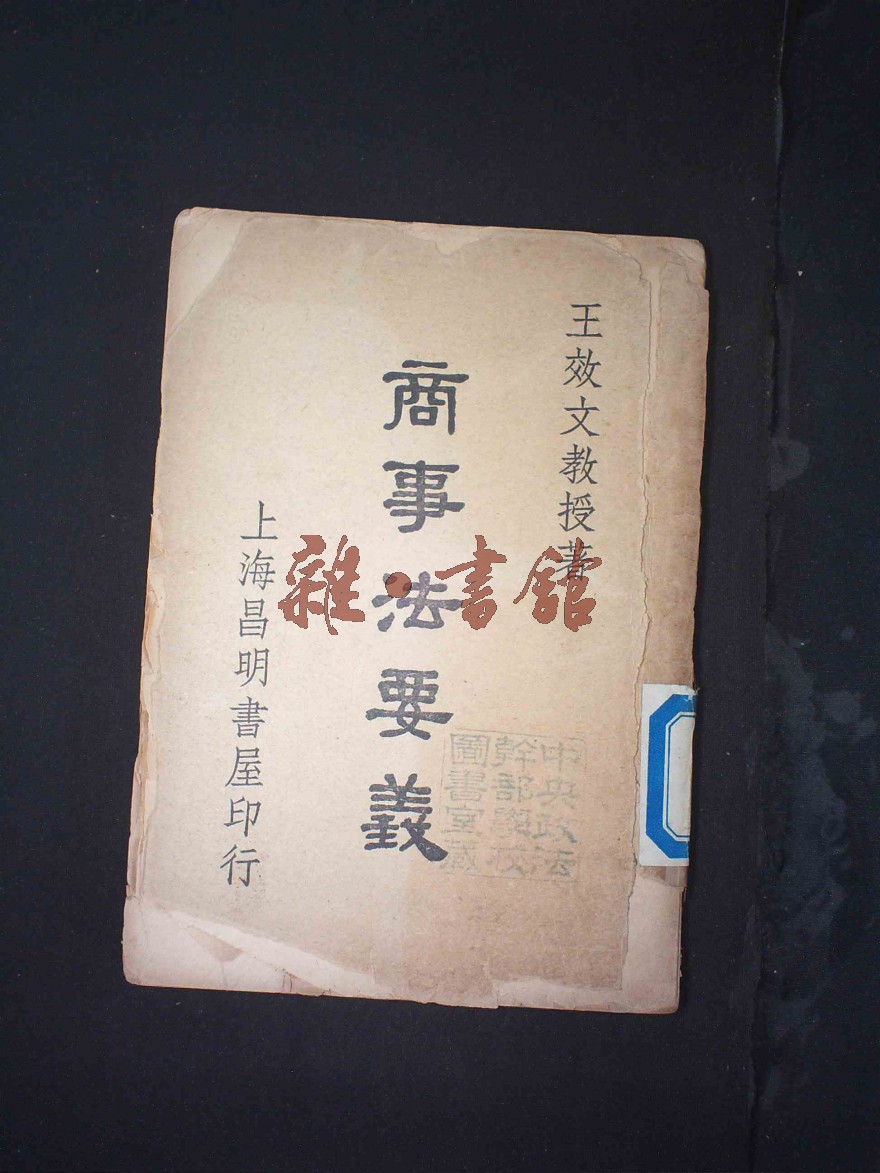 王效文教授著
商事法要義
上海昌明書屋印行
中央政法
幹部學校
圖書室藏
雜·書館